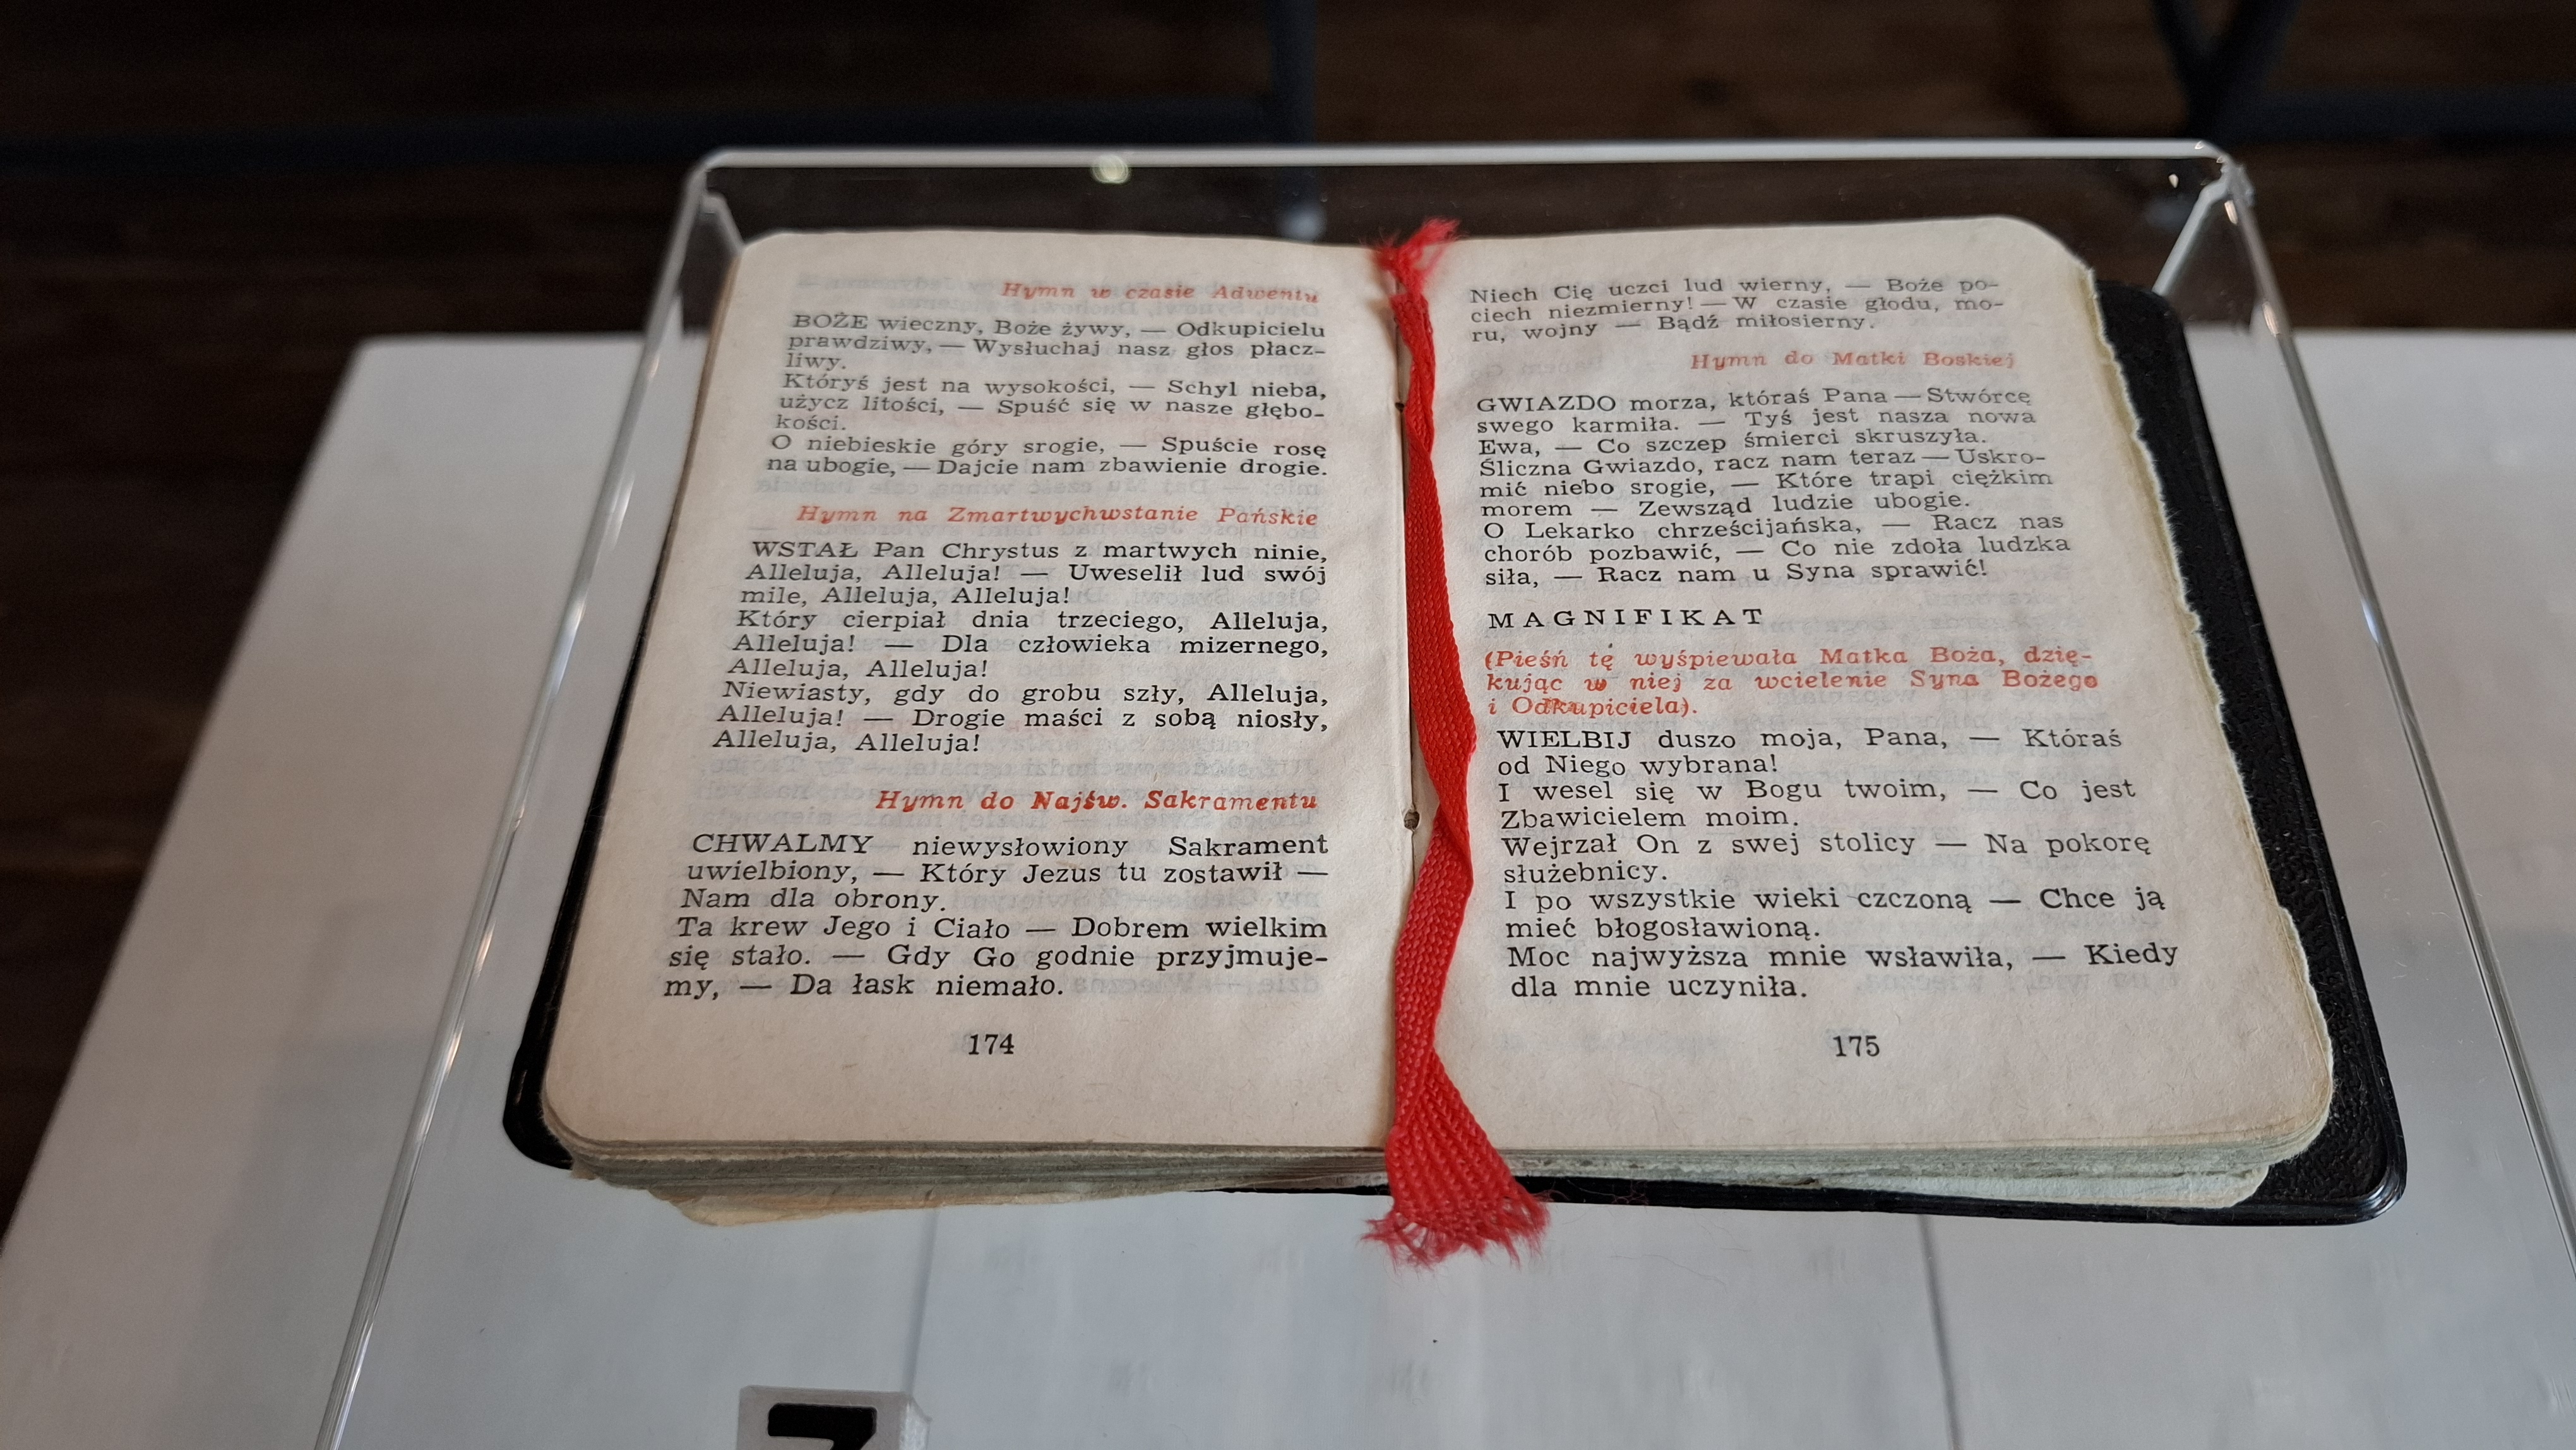 Hymn w czasie Adwentu
BOŻE wieczny, Boże żywy, — Odkupicielu
prawdziwy, — Wysłuchaj nasz głos płacz-
liwy.
Któryś jest na wysokości, — Schyl nieba,
użycz litości, — Spuść się w nasze głębo-
kości.
O niebieskie góry srogie, — Spuście rosę
na ubogie, — Dajcie nam zbawienie drogie.
Hymn na Zmartwychwstanie Pańskie
WSTAŁ Pan Chrystus z martwych ninie,
Alleluja, Alleluja! — Uweselił lud swój
mile, Alleluja, Alleluja!
Który cierpiał dnia trzeciego, Alleluja,
Alleluja! — Dla człowieka mizernego,
Alleluja, Alleluja!
Niewiasty, gdy do grobu szły, Alleluja,
Alleluja! — Drogie maści z sobą niosły,
Alleluja, Alleluja!
Hymn do Najśw. Sakramentu
CHWALMY niewysłowiony Sakrament
uwielbiony, — Który Jezus tu zostawił —
Nam dla obrony.
Ta krew Jego i Ciało — Dobrem wielkim
się stało. — Gdy Go godnie przyjmuje-
my, — Da łask niemało.
174
Niech Cię uczci lud wierny, — Boże po-
ciech niezmierny! — W czasie głodu, mo-
ru, wojny — Bądź miłosierny.
Hymn do Matki Boskiej
GWIAZDO morza, któraś Pana — Stwórcę
swego karmiła. — Tyś jest nasza nowa
Ewa, — Co szczep śmierci skruszyła.
Śliczna Gwiazdo, racz nam teraz — Uskro-
mić niebo srogie, — Które trapi ciężkim
morem — Zewsząd ludzie ubogie.
O Lekarko chrześcijańska, — Racz nas
chorób pozbawić, — Co nie zdoła ludzka
siła, — Racz nam u Syna sprawić!
MAGNIFIKAT
(Pieśń tę wyśpiewała Matka Boża, dzię-
kując w niej za wcielenie Syna Bożego
i Odkupiciela).
WIELBIJ duszo moja, Pana, — Któraś
od Niego wybrana!
I wesel się w Bogu twoim, — Co jest
Zbawicielem moim.
Wejrzał On z swej stolicy — Na pokorę
służebnicy.
I po wszystkie wieki czczoną — Chce ją
mieć błogosławioną.
Moc najwyższa mnie wsławiła, — Kiedy
dla mnie uczyniła.
175